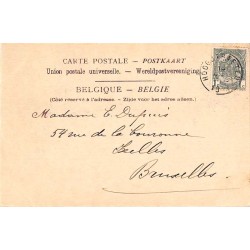 CARTE POSTALE – POSTKAART
Union postale universelle. – Wereldpostvereeniging
BELGIQUE – BELGIE
(Côté réservé à l'adresse. – Zijde voor het adres alleen.)
Madame E. Dupuis
54 rue de la Couronne
Ixelles
Bruxelles